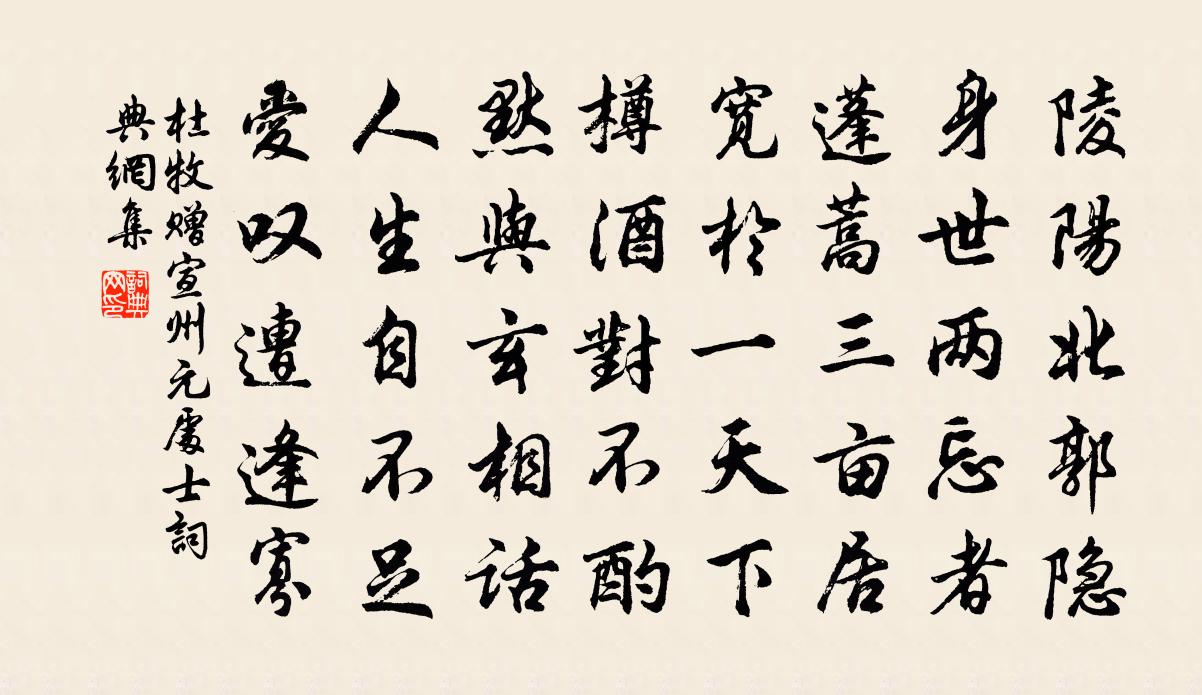 陵陽北郭隐
身世两忘者
蓬蒿三亩居
寛於一天下
樽酒對不酌
默與玄相話
人生自不足
愛叹遭逢寡
杜牧赠宣州元處士詞
典網集
詞典网印